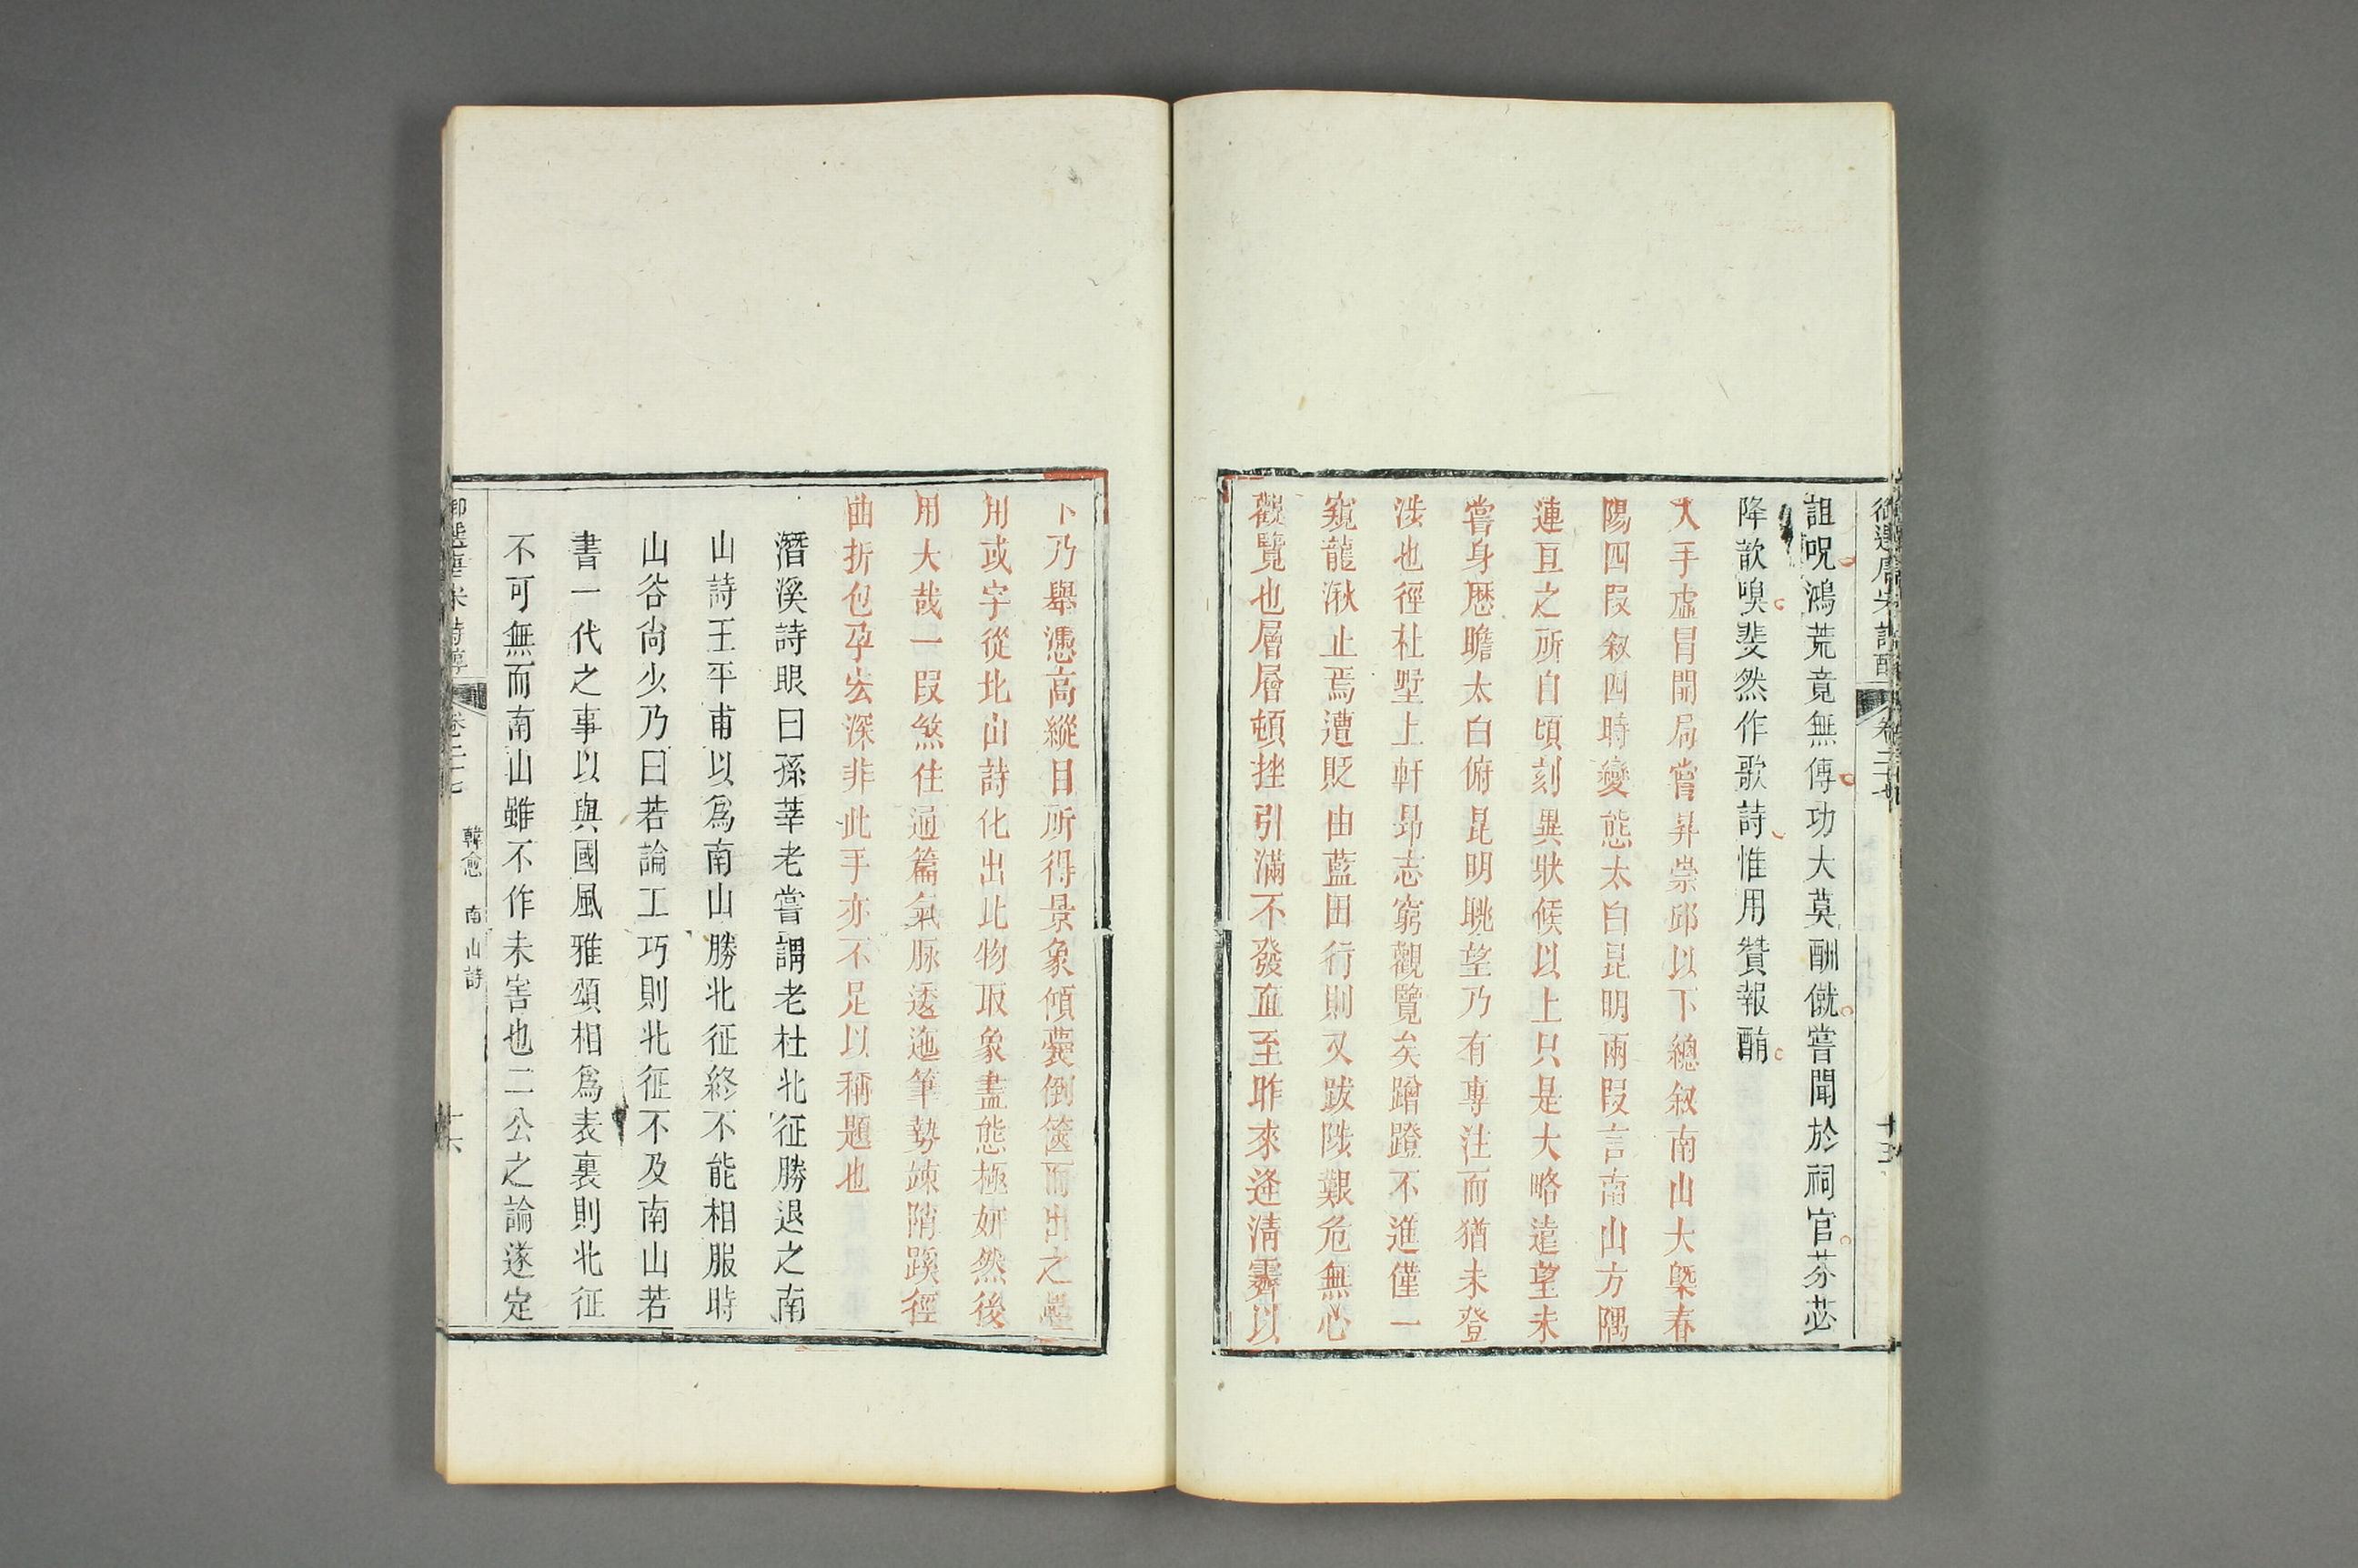 御選唐宋詩醇 卷二十七 十五
詛呪鴻荒竟無傳功大莫酬僦嘗聞於祠官芬苾
降歆嗅斐然作歌詩惟用贊報酭
入手虛冒開局嘗昇崇邱以下總叙南山大槩春
陽四叚叙四時變態太白昆明兩叚言南山方隅
連亘之所自頃刻異狀候以上只是大略遠望未
嘗身歷瞻太白俯昆明眺望乃有專注而猶未登
涉也徑杜墅上軒昻志窮觀覽矣蹭蹬不進僅一
窺龍湫止焉遭貶由藍田行則又跋陟艱危無心
觀覽也層層頓挫引滿不發直至昨來逢淸霽以
下乃舉憑高縱目所得景象傾囊倒篋而出之疊
用或字從北山詩化出比物取象盡態極妍然後
用大哉一叚煞住通篇氣脉逶迤筆勢竦陗蹊徑
曲折包孕宏深非此手亦不足以稱題也
潛溪詩眼曰孫莘老嘗謂老杜北征勝退之南
山詩王平甫以爲南山勝北征終不能相服時
山谷尙少乃曰若論工巧則北征不及南山若
書一代之事以與國風雅頌相爲表裏則北征
不可無而南山雖不作未害也二公之論遂定
御選唐宋詩醇 卷二十七 韓愈 南山詩 十六